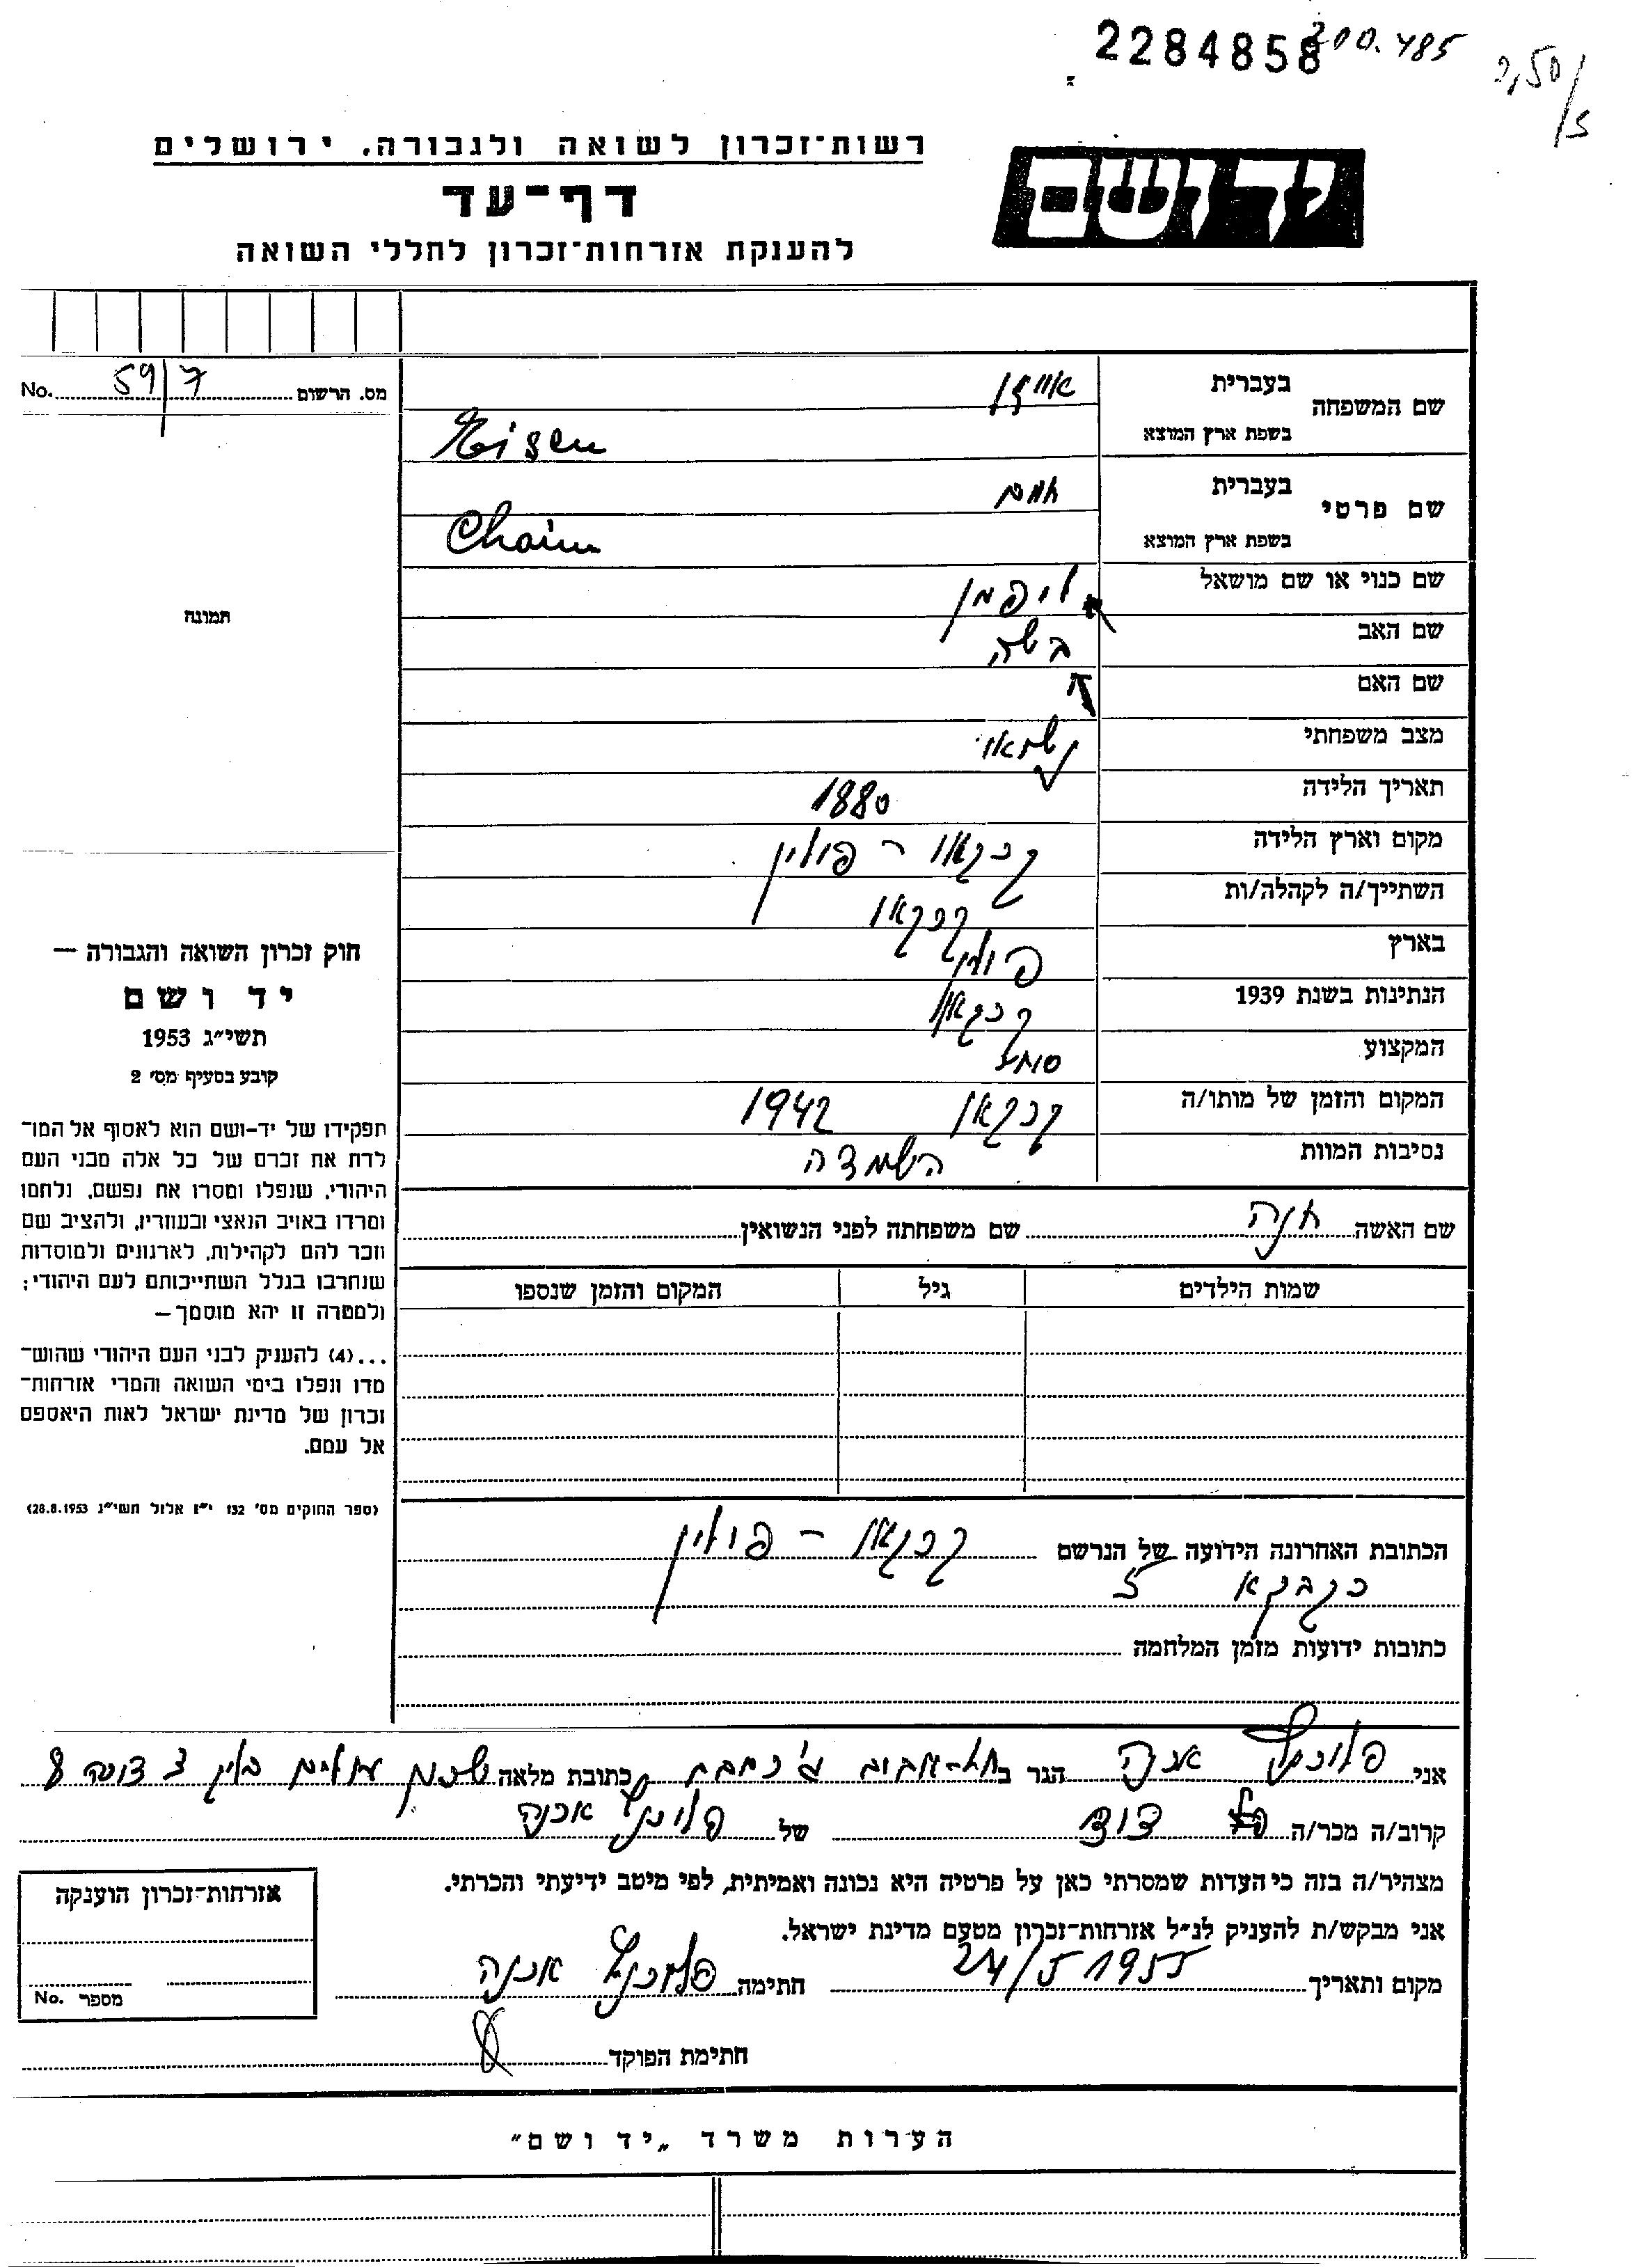 2284858
200.485
רשות־זכרון לשואה ולגבורה. ירושלים
דף־עד
להענקת אזרחות־זכרון לחללי השואה
יד ושם
מס. הרשום 59/7 No.
שם המשפחה
בעברית אייזן
בשפת ארץ המוצא Eisen
שם פרטי
בעברית חיים
בשפת ארץ המוצא Chaim
שם כנוי או שם מושאל ליפמן
שם האב
שם האם
מצב משפחתי נשואי
תאריך הלידה 1880
מקום וארץ הלידה קרקאו - פולין
השתייך/ה לקהלה/ות קרקאו
בארץ פולין
הנתינות בשנת 1939 קרקאו
המקצוע סוחר
המקום והזמן של מותו/ה קרקאו 1942
נסיבות המוות השמדה
תמונה
חוק זכרון השואה והגבורה —
יד ושם
תשי״ג 1953
קובע בסעיף מס׳ 2
תפקידו של יד-ושם הוא לאסוף אל המו־
לדת את זכרם של כל אלה מבני העם
היהודי, שנפלו ומסרו את נפשם, נלחמו
ומרדו באויב הנאצי ובעוזריו, ולהציב שם
וזכר להם לקהילות, לארגונים ולמוסדות
שנחרבו בגלל השתייכותם לעם היהודי;
ולמטרה זו יהא מוסמך —
...(4) להעניק לבני העם היהודי שהוש־
מדו ונפלו בימי השואה והמרי אזרחות־
זכרון של מדינת ישראל לאות היאספם
אל עמם.
(ספר החוקים מס׳ 132 י״ז אלול תשי״ג 28.8.1953)
שם האשה חנה שם משפחתה לפני הנשואין
שמות הילדים גיל המקום והזמן שנספו
הכתובת האחרונה הידועה של הנרשם קרקאו - פולין
5
כתובות ידועות מזמן המלחמה
אני אנה הגר ב תל-אביב כתובת מלאה שכון עולים בלוק 3 דירה 8
קרוב/ה מכר/ה דוד של אנה
מצהיר/ה בזה כי העדות שמסרתי כאן על פרטיה היא נכונה ואמיתית, לפי מיטב ידיעתי והכרתי.
אני מבקש/ת להעניק לנ״ל אזרחות־זכרון מטעם מדינת ישראל.
מקום ותאריך 24/5 1955 חתימה אנה
חתימת הפוקד
אזרחות־זכרון הוענקה
מספר No.
הערות משרד „יד ושם״